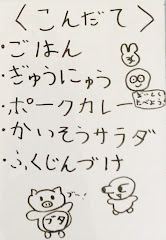 〈こんだて〉
・ごはん
・ぎゅうにゅう
・ポークカレー
おいしく
たべよう
・かいそうサラダ
・ふくじんづけ
ブタ